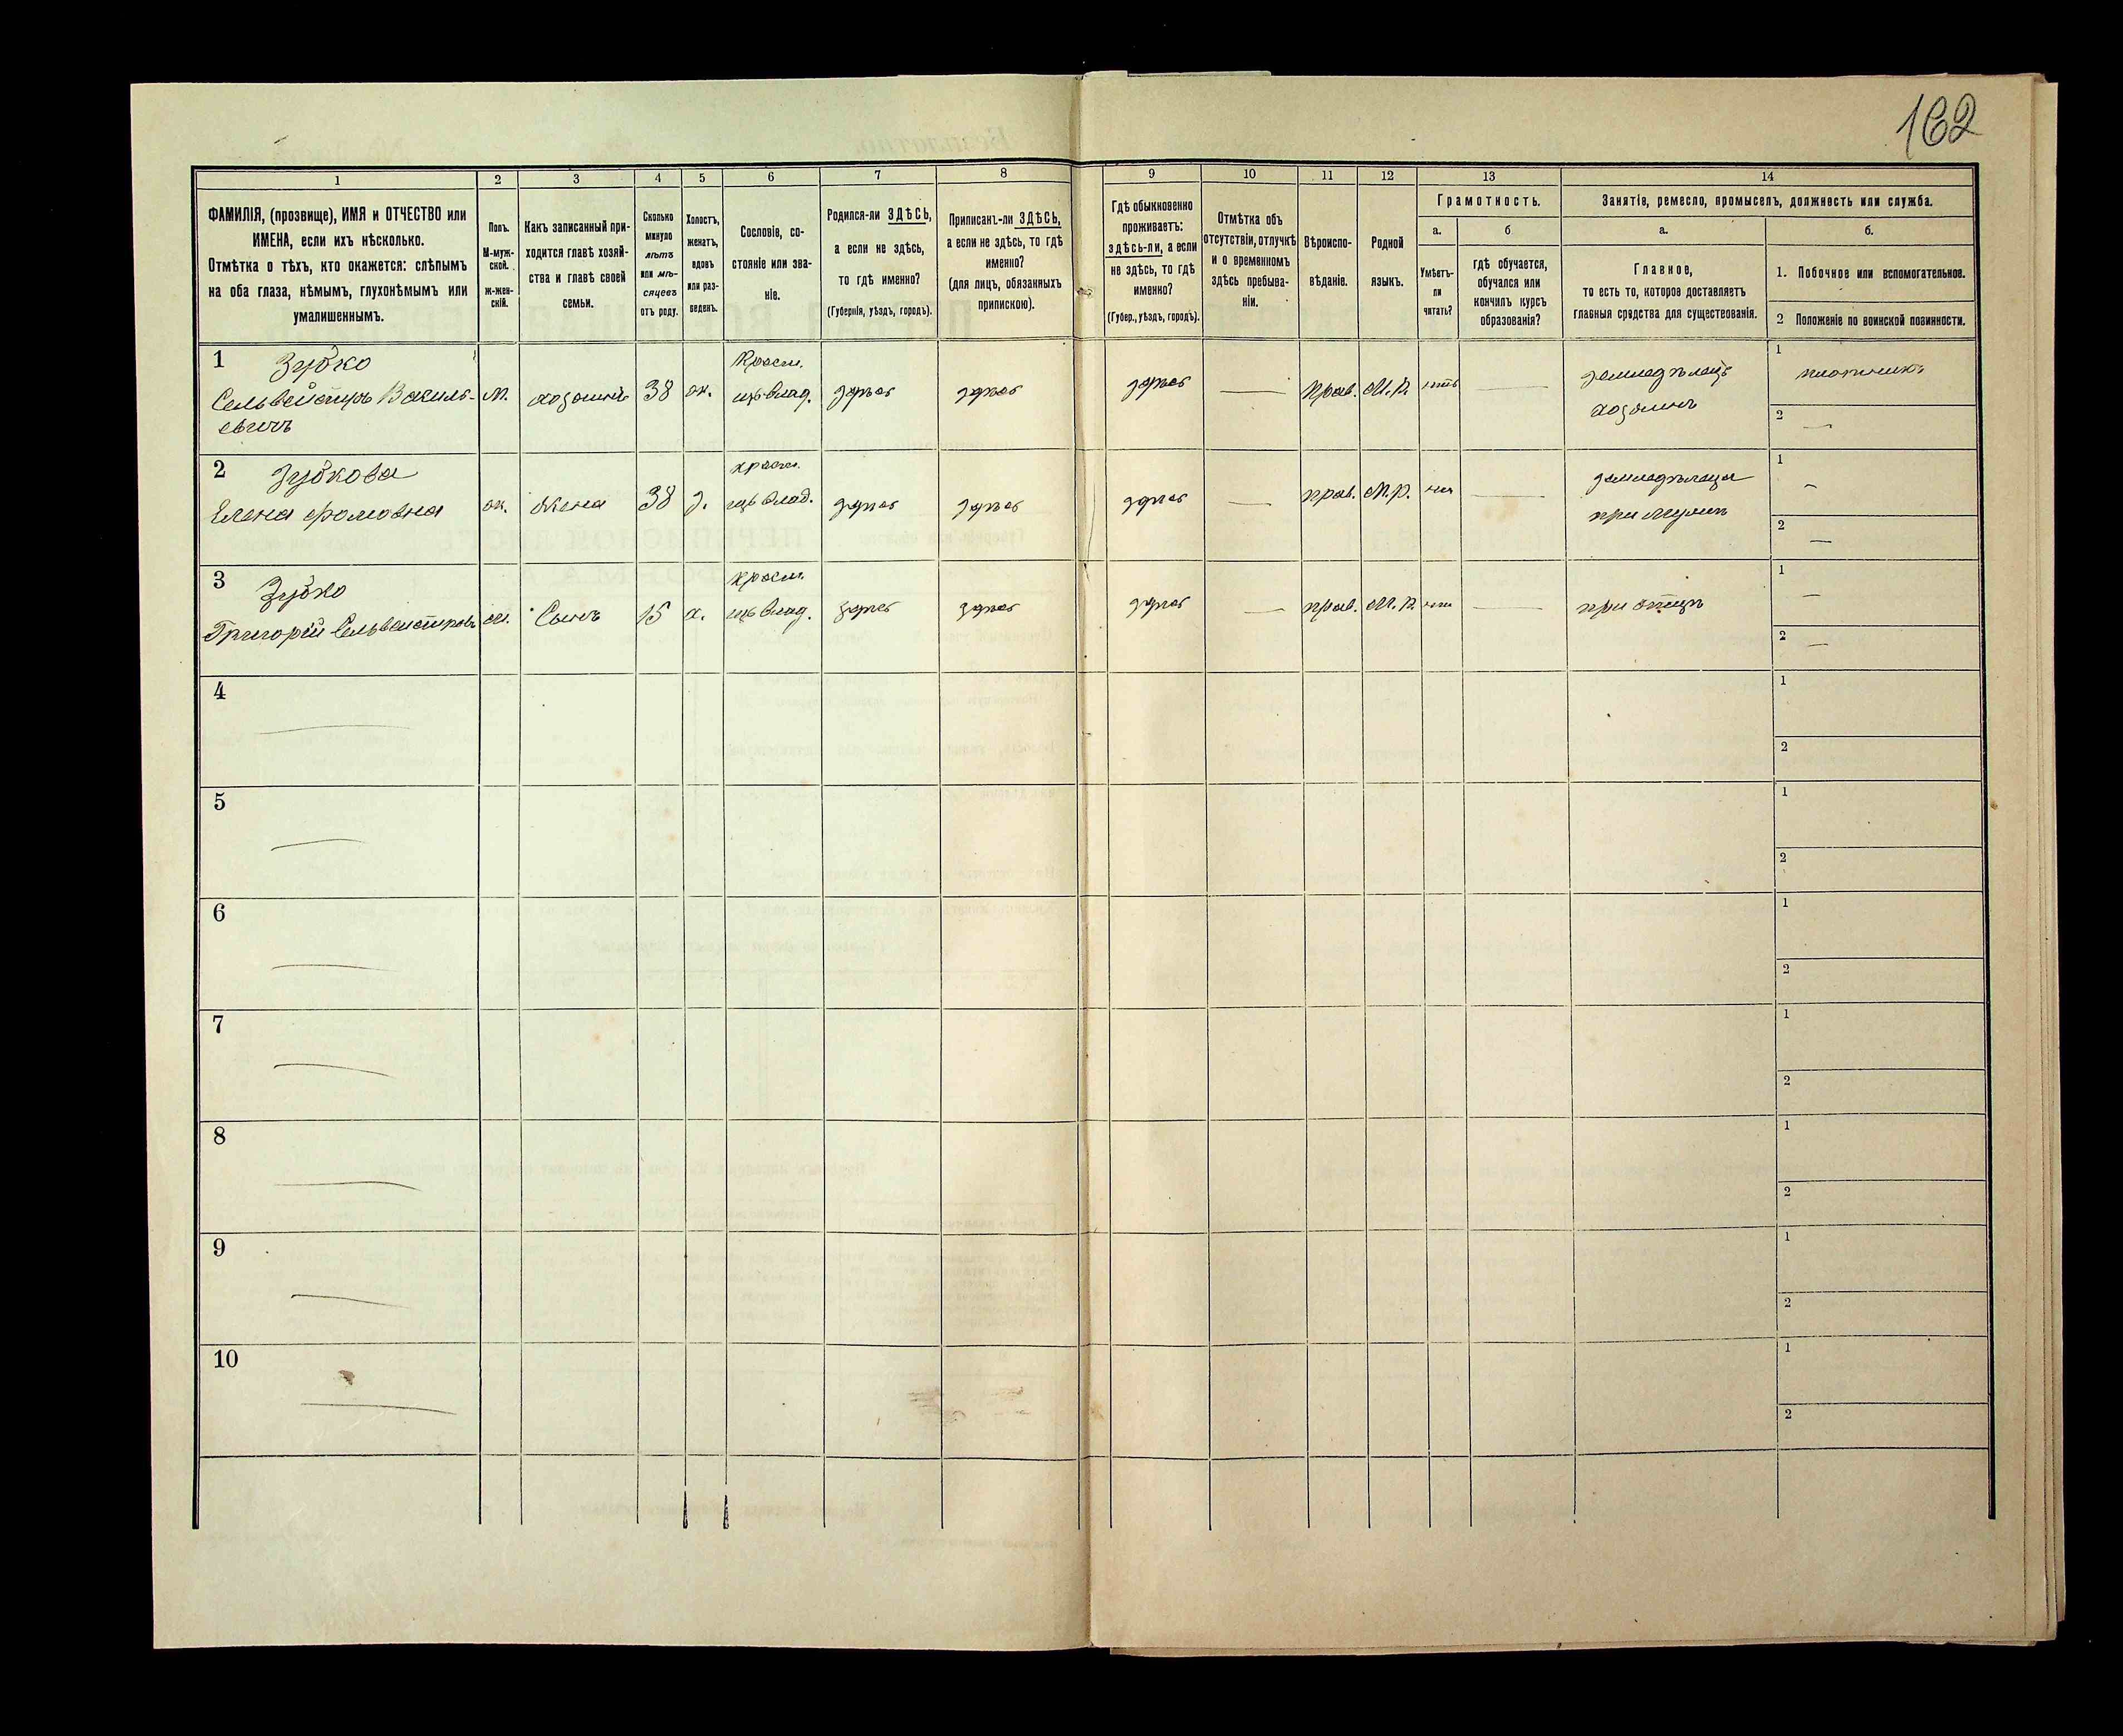 162
1 2 3 4 5 6 7 8 9 10 11 12 13 14
ФАМИЛІЯ, (прозвище), ИМЯ и ОТЧЕСТВО или
ИМЕНА, если ихъ нѣсколько.
Отмѣтка о тѣхъ, кто окажется: слѣпымъ
на оба глаза, нѣмымъ, глухонѣмымъ или
умалишеннымъ.
Полъ.
М-муж-
ской.
ж-жен-
скій.
Какъ записанный при-
ходится главѣ хозяй-
ства и главѣ своей
семьи.
Сколько
минуло
лѣтъ
или мѣ-
сяцевъ
отъ роду.
Холостъ,
женатъ,
вдовъ
или раз-
веденъ.
Сословіе, со-
стояніе или зва-
ніе.
Родился-ли ЗДѢСЬ,
а если не здѣсь,
то гдѣ именно?
(Губернія, уѣздъ, городъ).
Приписанъ-ли ЗДѢСЬ,
а если не здѣсь, то гдѣ
именно?
(для лицъ, обязанныхъ
припискою).
Гдѣ обыкновенно
проживаетъ:
здѣсь-ли, а если
не здѣсь, то гдѣ
именно?
(Губер., уѣздъ, городъ).
Отмѣтка объ
отсутствіи, отлучкѣ
и о временномъ
здѣсь пребыва-
ніи.
Вѣроиспо-
вѣданіе.
Родной
языкъ.
Грамотность.
а.
Умѣетъ-
ли
читать?
б
гдѣ обучается,
обучался или
кончилъ курсъ
образованія?
Занятіе, ремесло, промыселъ, должность или служба.
а.
Главное,
то есть то, которое доставляетъ
главныя средства для существованія.
б.
1. Побочное или вспомогательное.
2 Положеніе по воинской повинности.
1 Зубко
Сельвейстръ Василь-
евичъ
м. хозяинъ 38 ж.
Крест.
изъ влад.
здѣсь здѣсь здѣсь — прав. М.р. нѣтъ —
земледѣлецъ
хозяинъ
1 плотникъ
2 —
2 Зубкова
Елена Фомовна
ж. Жена 38 з.
крест.
изъ влад.
здѣсь здѣсь здѣсь — прав. М.р. —
при мужѣ
1 —
2 —
3 Зубко
Григорій Сельвейстровъ
м. Сынъ 15 х.
крест.
изъ влад.
здѣсь здѣсь здѣсь — прав. М.р. —
при отцѣ
1 —
2 —
4 —
1
2
5 —
1
2
6 —
1
2
7 —
1
2
8 —
1
2
9 —
1
2
10 —
1
2